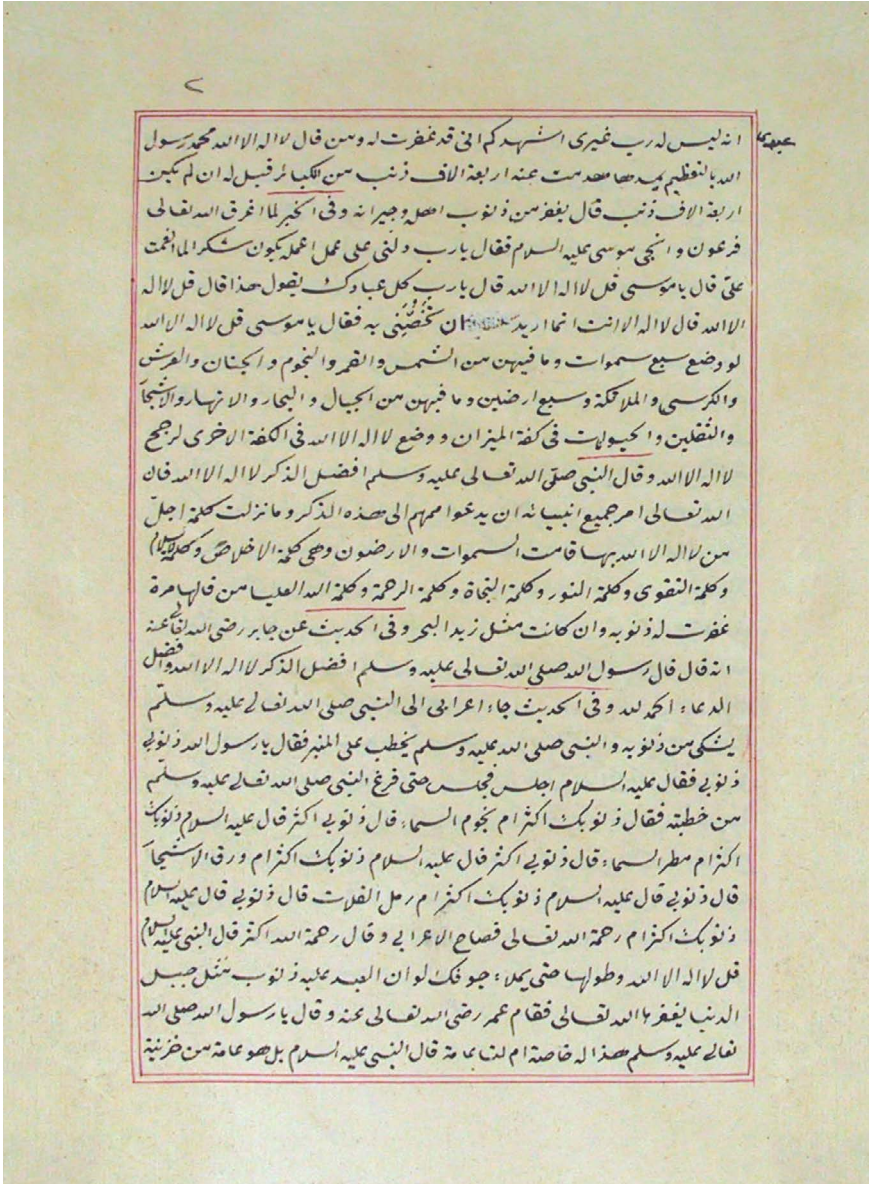 ٢
انه ليس له رب غيرى اشهدكم انى قد غفرت له ومن قال لا اله الا الله محمد رسول
الله بالتعظيم يمدها هدمت عنه اربعة الاف ذنب من الكبائر قيل له ان لم يكن
اربعة الاف ذنب قال يغفر من ذنوب اهله وجيرانه وفى الخبر لما اغرق الله تعالى
فرعون وانجى موسى عليه السلام فقال يارب دلنى على عمل اعمله يكون شكرا لما انعمت
علىّ قال يا موسى قل لا اله الا الله قال يارب كل عبادك يقول هذا قال قل لا اله
الا الله قال لا اله الا انت انما اريد ان تخصّنى به فقال يا موسى قل لا اله الا الله
لو وضع سبع سموات وما فيهن من الشمس والقمر والنجوم والجنان والعرش
والكرسى والملائكة وسبع ارضين وما فيهن من الجبال والبحار والانهار والاشجا
والثقلين والحيوانات فى كفة الميزان ووضع لا اله الا الله فى الكفة الاخرى لرجح
لا اله الا الله وقال النبى صلى الله تعالى عليه وسلم افضل الذكر لا اله الا الله فان
الله تعالى امر جميع انبيائه ان يدعوا اممهم الى هذه الذكر وما نزلت كلمة اجلّ
من لا اله الا الله بها قامت السموات والارضون وهى كلمة الاخلاص وكلمة الاسلام
وكلمة التقوى وكلمة النور وكلمة النجاة وكلمة الرحمة وكلمة الله العليا من قالها مرة
غفرت له ذنوبه وان كانت مثل زبد البحر وفى الحديث عن جابر رضى الله تعالى عنه
انه قال قال رسول الله صلى الله تعالى عليه وسلم افضل الذكر لا اله الا الله وافضل
الدعاء الحمد لله وفى الحديث جاء اعرابى الى النبى صلى الله تعالى عليه وسلم
يشكى من ذنوبه والنبى صلى الله عليه وسلم يخطب على المنبر فقال يا رسول الله ذنوبى
ذنوبى فقال عليه السلام اجلس فجلس حتى فرغ النبى صلى الله تعالى عليه وسلم
من خطبته فقال ذنوبك اكثر ام نجوم السماء قال ذنوبى اكثر قال عليه السلام ذنوبك
اكثر ام مطر السماء قال ذنوبى اكثر قال عليه السلام ذنوبك اكثر ام ورق الاشجا
قال ذنوبى قال عليه السلام ذنوبك اكثر ام رمل الفلات قال ذنوبى قال عليه السلام
ذنوبك اكثر ام رحمة الله تعالى فصاح الاعرابى وقال رحمة الله اكثر قال النبى عليه السلام
قل لا اله الا الله وطولها حتى يملاء جوفك لو ان العبد عليه ذنوب مثل جبل
الدنيا يغفرها الله تعالى فقام عمر رضى الله تعالى عنه وقال يا رسول الله صلى الله
تعالى عليه وسلم هذا له خاصة ام لنا عامة قال النبى عليه السلام بل هو عامة من خزينة